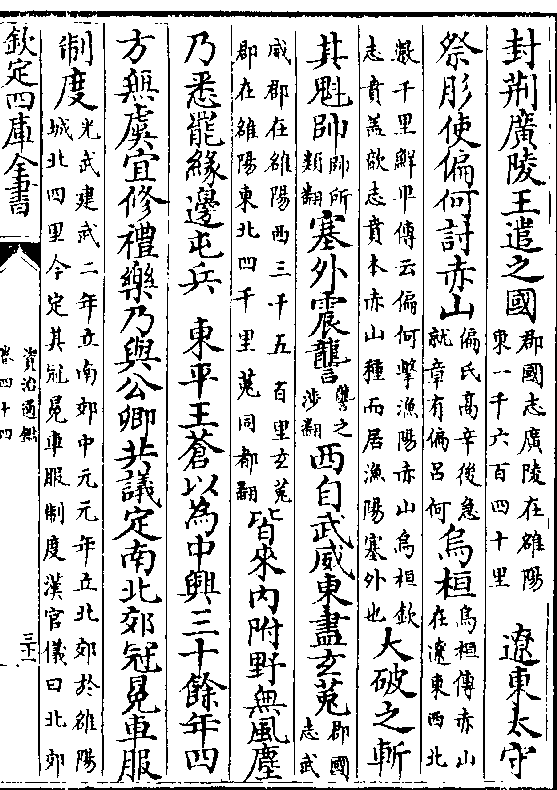 封荆廣陵王遣之國
郡國志廣陵在雒陽
東一千六百四十里
遼東太守
祭肜使偏何討赤山
偏氏高辛後急
就章有偏吕何
烏桓
烏桓傳赤山
在遼東西北
數千里鮮卑傳云偏何擊漁陽赤山烏桓歆
志賁盖歆志賁本赤山種而居漁陽塞外也
大破之斬
其魁帥
帥所
類翻
塞外震讋
讋之
涉翻
西自武威東盡玄菟
郡國
志武
威郡在雒陽西三千五百里玄菟
郡在雒陽東北四千里菟同都翻
皆來内附野無風塵
乃悉罷緣邊屯兵 東平王蒼以為中興三十餘年四
方無虞宜修禮樂乃與公卿共議定南北郊冠冕車服
制度
光武建武二年立南郊中元元年立北郊於雒陽
城北四里今定其冠冕車服制度漢官儀曰北郊
欽定四庫全書
資治通鑑
卷四十四